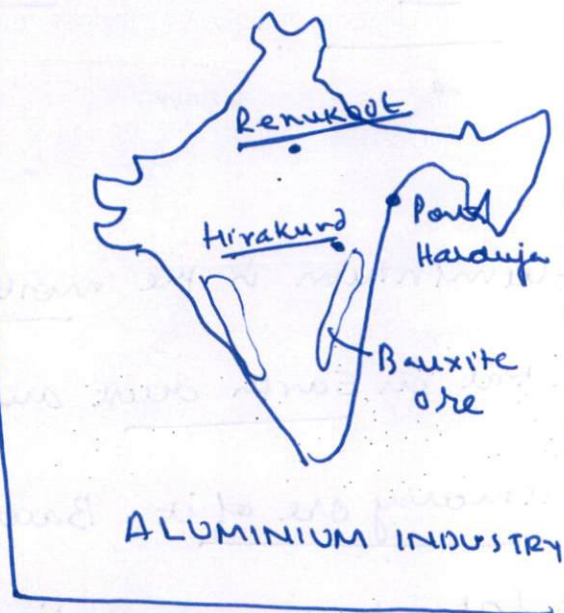 Renukoot
Hirakund
Port
Haldia
Bauxite
Ore
ALUMINIUM INDUSTRY